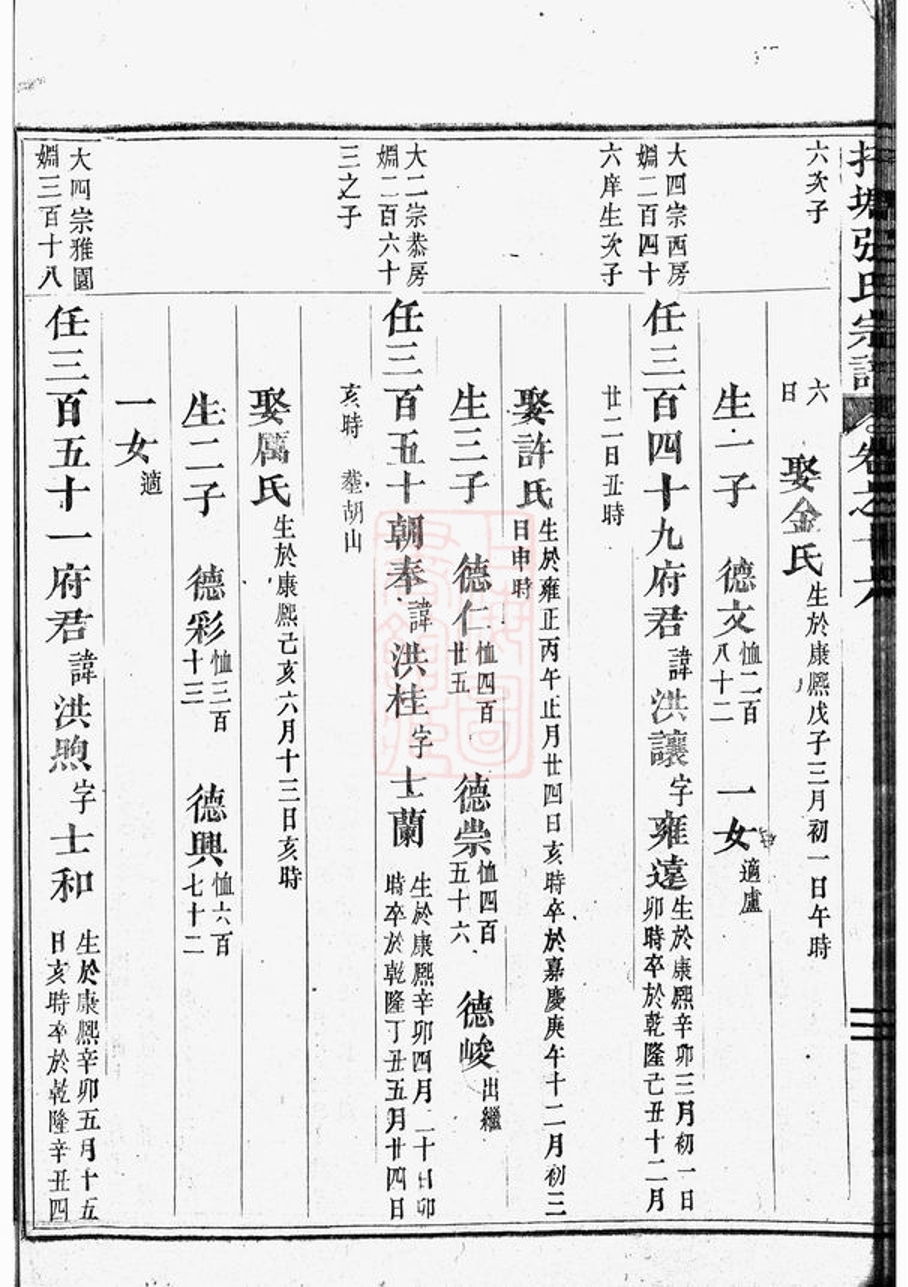 張氏宗譜
六次子
六
日
娶金氏
生於康熙戊子三月初一日午時
生一子 德文 恤二百
八十二
一女 適盧
大四宗西房
婣二百四十
六庠生次子
任三百四十九府君 諱 洪讓 字 雍遠
生於康熙辛卯三月初一日
卯時卒於乾隆己丑十二月
廿二日丑時
娶許氏
生於雍正丙午正月廿四日亥時卒於嘉慶庚午十二月初三
日申時
生三子 德仁 恤四百
廿五
德崇 恤四百
五十六
德峻 出繼
大二宗恭房
婣二百六十
三之子
任三百五十朝奉 諱 洪桂 字 士蘭
生於康熙辛卯四月二十日卯
時卒於乾隆丁丑五月廿四日
亥時 塟胡山
娶厲氏
生於康熙己亥六月十三日亥時
生二子 德彩 恤三百
十三
德興 恤六百
七十二
一女 適
大四宗雅園
婣三百十八
任三百五十一府君 諱 洪煦 字 士和
生於康熙辛卯五月十五
日亥時卒於乾隆辛丑四